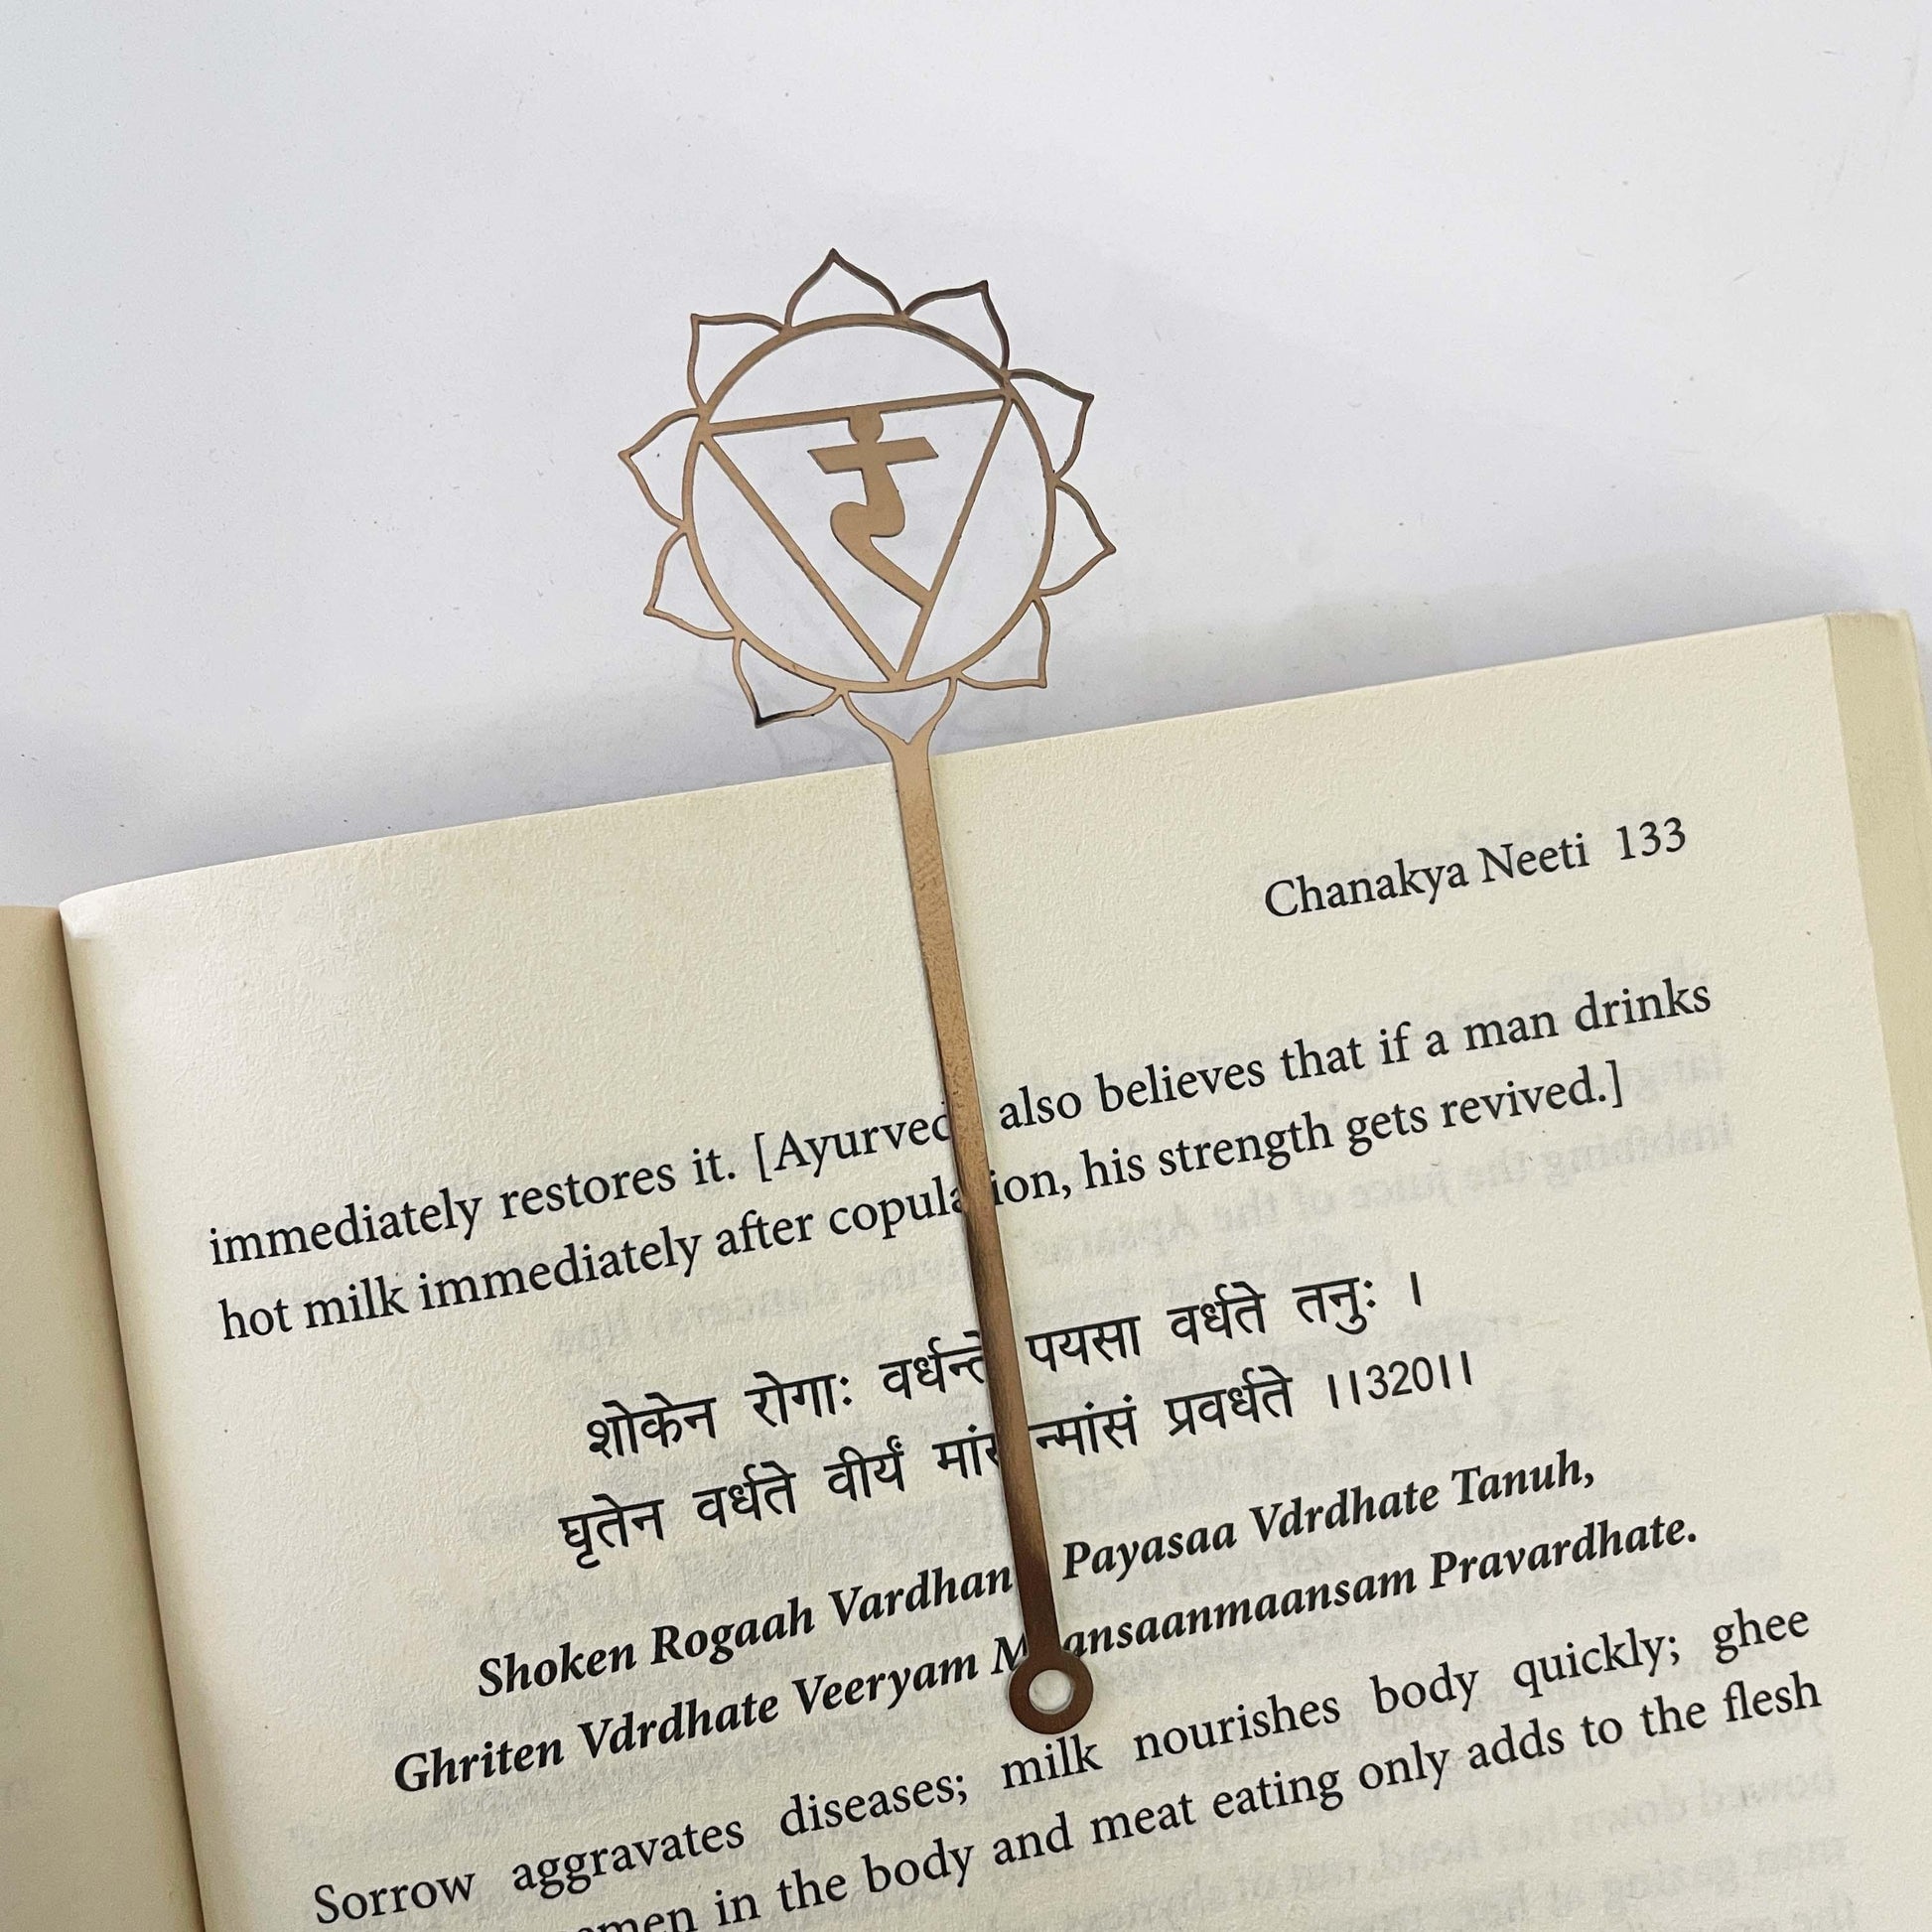 रं
Chanakya Neeti 133
immediately restores it. [Ayurved also believes that if a man drinks
hot milk immediately after copulation, his strength gets revived.]
शोकेन रोगाः वर्धन्ते पयसा वर्धते तनुः ।
घृतेन वर्धते वीर्यं मांसान्मांसं प्रवर्धते ।।320।।
Shoken Rogaah Vardhan Payasaa Vdrdhate Tanuh,
Ghriten Vdrdhate Veeryam Maansaanmaansam Pravardhate.
Sorrow aggravates diseases; milk nourishes body quickly; ghee
in the body and meat eating only adds to the flesh